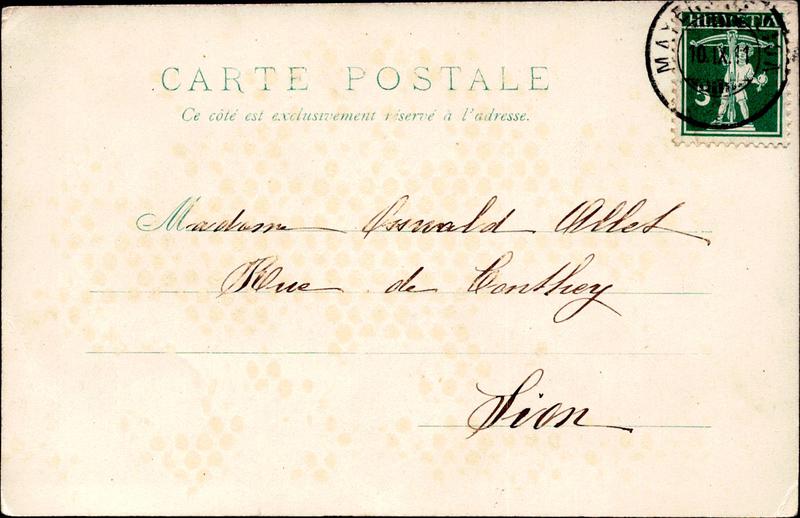 CARTE POSTALE
Ce côté est exclusivement réservé à l'adresse.
HELVETIA
10.IX.11
5
Madame Osswald Allet
Rue de Conthey
Sion